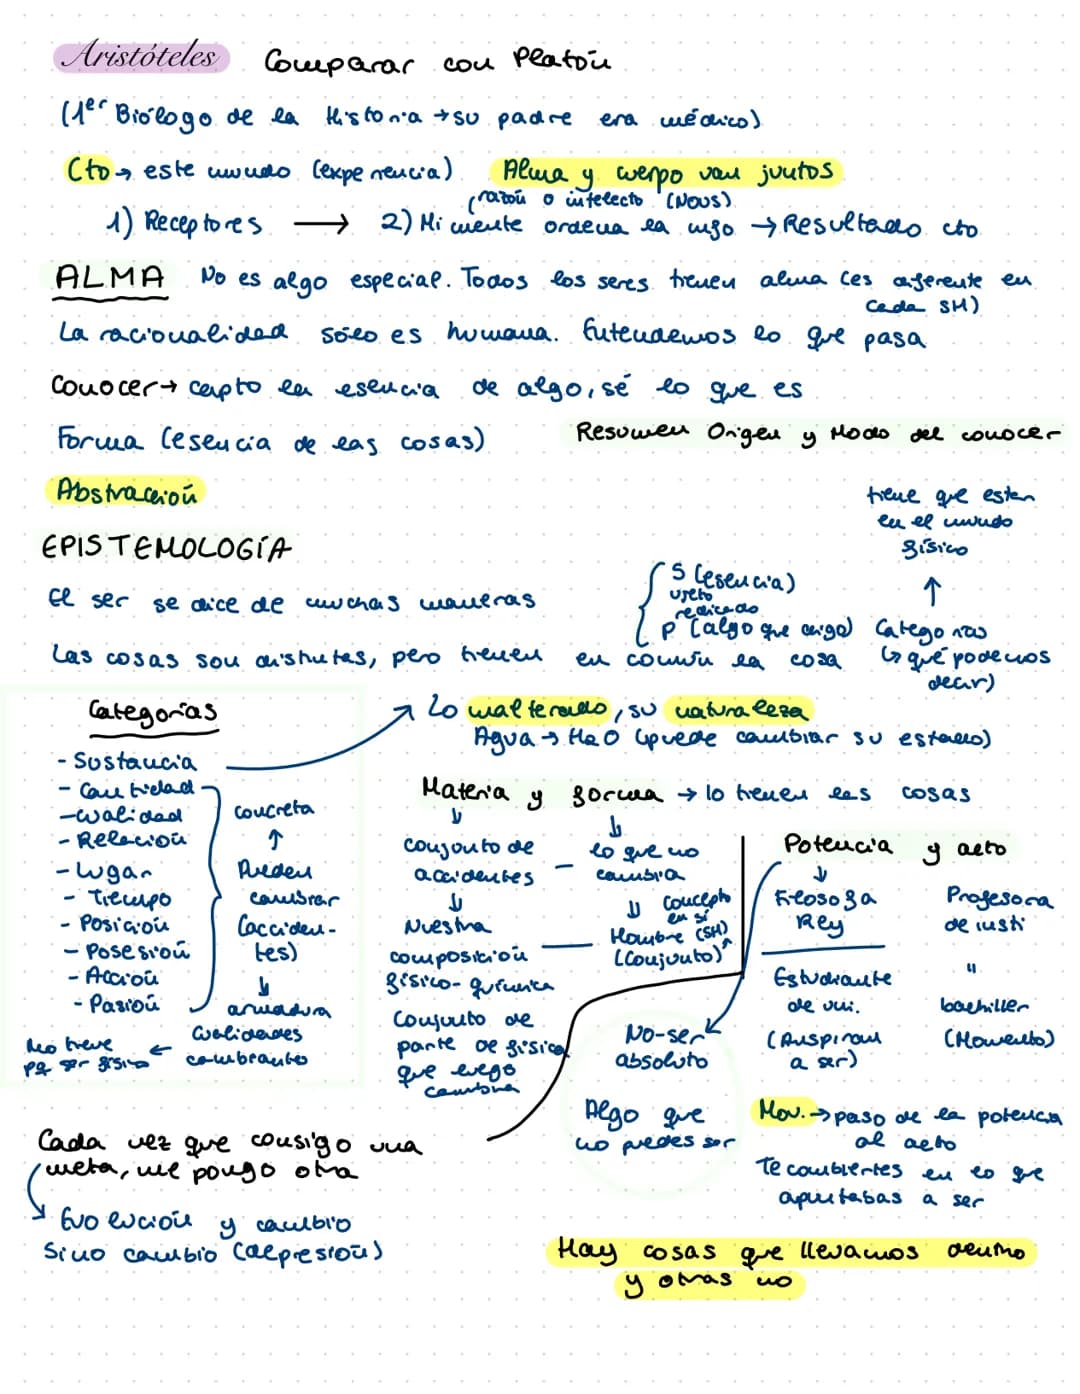 Aristóteles Comparar con Platón
(1er Biólogo de la Historia → su padre era médico)
Cto → este mundo (experiencia) Alma y cuerpo van juntos
(razón o intelecto (Nous)
1) Receptores → 2) Mi mente ordena la info → Resultado cto
ALMA No es algo especial. Todos los seres tienen alma (es diferente en
cada SH)
La racionalidad sólo es humana. Entendemos lo que pasa
Conocer → capto la esencia de algo, sé lo que es
Forma (esencia de las cosas) Resumen Origen y Modo del conocer
Abstracción
tiene que estar
en el mundo
físico
↑
EPISTEMOLOGÍA
El ser se dice de muchas maneras
S (esencia)
ujeto
redicado
P (algo que digo)
Categorías
(→ qué podemos
decir)
Las cosas son distintas, pero tienen en común la cosa
Categorías
- Sustancia → Lo inalterado, su naturaleza
Agua → H2O (puede cambiar su estado)
- Cantidad
- Cualidad
- Relación
- Lugar
- Tiempo
- Posición
- Posesión
- Acción
- Pasión
concreta
↑
Pueden
cambiar
(acciden-
tes)
↓
armadura
Cualidades
cambiantes
No tiene
pq ser físico ←
Materia y forma → lo tienen las cosas
conjunto de
accidentes
↓
Nuestra
composición
físico-química
Conjunto de
parte de física
que luego
cambia
- lo que no
cambia
⇓ concepto
en sí
Hombre (SH)
(Conjunto)
Potencia y acto
↓
Filosofa
Rey
Profesora
de insti
Estudiante
de uni.
(Aspiran
a ser)
"
bachiller
(Momento)
No-ser
absoluto
Algo que
no puedes ser
Mov. → paso de la potencia
al acto
Te combiertes en lo que
apuntabas a ser
Cada vez que consigo una
meta, me pongo otra
Evolución y cambio
Si no cambio (depresión)
Hay cosas que llevamos dentro
y otras no